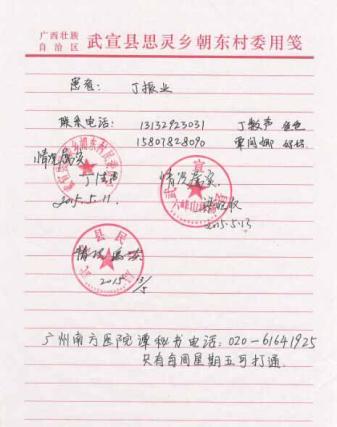 广西壮族
自治区 武宣县思灵乡朝东村委用笺
患者: 丁振业
联系电话: 13132923031 丁数声 爸爸
15807828090 覃闰娜 妈妈
情况属实
2015.5.11.
情况属实
2015.5.13
情况属实
2015 13/5
广州南方医院谭秘书电话: 020-61641925
只有每周星期五可打通.